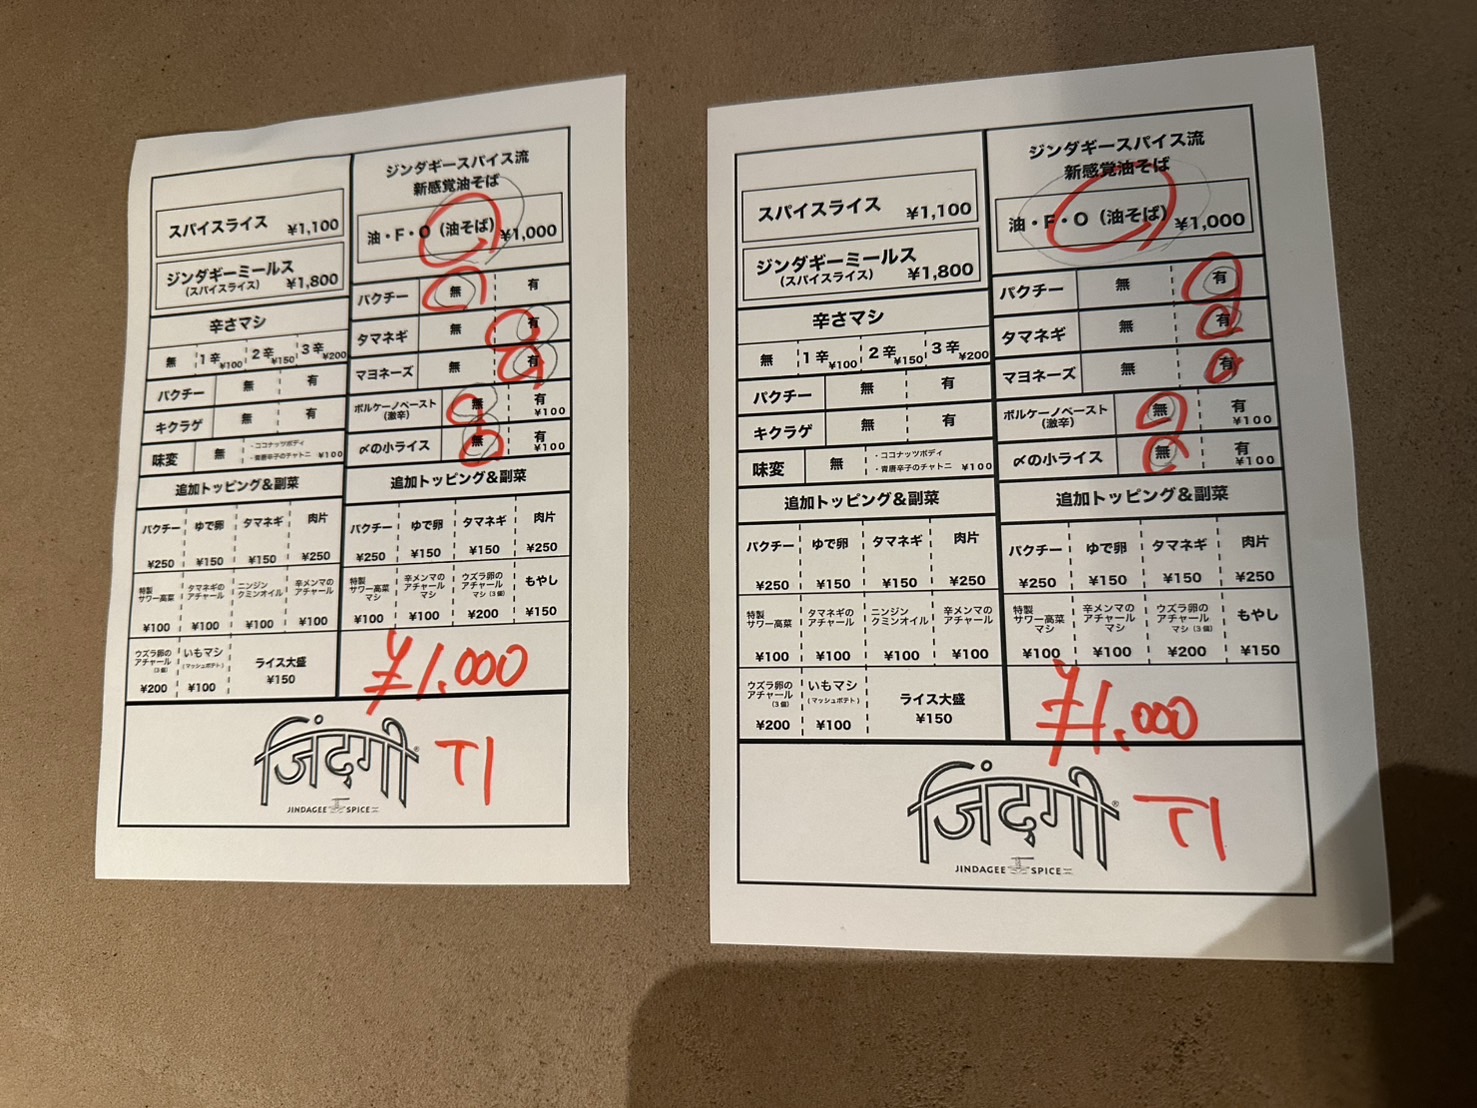 スパイスライス ¥1,100
ジンダギーミールス
(スパイスライス) ¥1,800
辛さマシ
無 1辛¥100 2辛¥150 3辛¥200
パクチー 無 有
キクラゲ 無 有
味変 無 ・ココナッツボディ
・青唐辛子のチャトニ ¥100
追加トッピング&副菜
パクチー ゆで卵 タマネギ 肉片
¥250 ¥150 ¥150 ¥250
特製 タマネギの ニンジン 辛メンマの
サワー高菜 アチャール クミンオイル アチャール
¥100 ¥100 ¥100 ¥100
ウズラ卵の いもマシ ライス大盛
アチャール (マッシュポテト) ¥150
(3個)
¥200 ¥100
ジンダギースパイス流
新感覚油そば
油・F・O(油そば) ¥1,000
パクチー 無 有
タマネギ 無 有
マヨネーズ 無 有
ボルケーノペースト 無 有
(激辛) ¥100
〆の小ライス 無 有
¥100
追加トッピング&副菜
パクチー ゆで卵 タマネギ 肉片
¥250 ¥150 ¥150 ¥250
特製 辛メンマの ウズラ卵の もやし
サワー高菜 アチャール アチャール
マシ マシ マシ(3個)
¥100 ¥100 ¥200 ¥150
¥1,000
जिंदगी
JINDAGEE SPICE
スパイスライス ¥1,100
ジンダギーミールス
(スパイスライス) ¥1,800
辛さマシ
無 1辛¥100 2辛¥150 3辛¥200
パクチー 無 有
キクラゲ 無 有
味変 無 ・ココナッツボディ
・青唐辛子のチャトニ ¥100
追加トッピング&副菜
パクチー ゆで卵 タマネギ 肉片
¥250 ¥150 ¥150 ¥250
特製 タマネギの ニンジン 辛メンマの
サワー高菜 アチャール クミンオイル アチャール
¥100 ¥100 ¥100 ¥100
ウズラ卵の いもマシ ライス大盛
アチャール (マッシュポテト) ¥150
(3個)
¥200 ¥100
ジンダギースパイス流
新感覚油そば
油・F・O(油そば) ¥1,000
パクチー 無 有
タマネギ 無 有
マヨネーズ 無 有
ボルケーノペースト 無 有
(激辛) ¥100
〆の小ライス 無 有
¥100
追加トッピング&副菜
パクチー ゆで卵 タマネギ 肉片
¥250 ¥150 ¥150 ¥250
特製 辛メンマの ウズラ卵の もやし
サワー高菜 アチャール アチャール
マシ マシ マシ(3個)
¥100 ¥100 ¥200 ¥150
¥1,000
जिंदगी
JINDAGEE SPICE